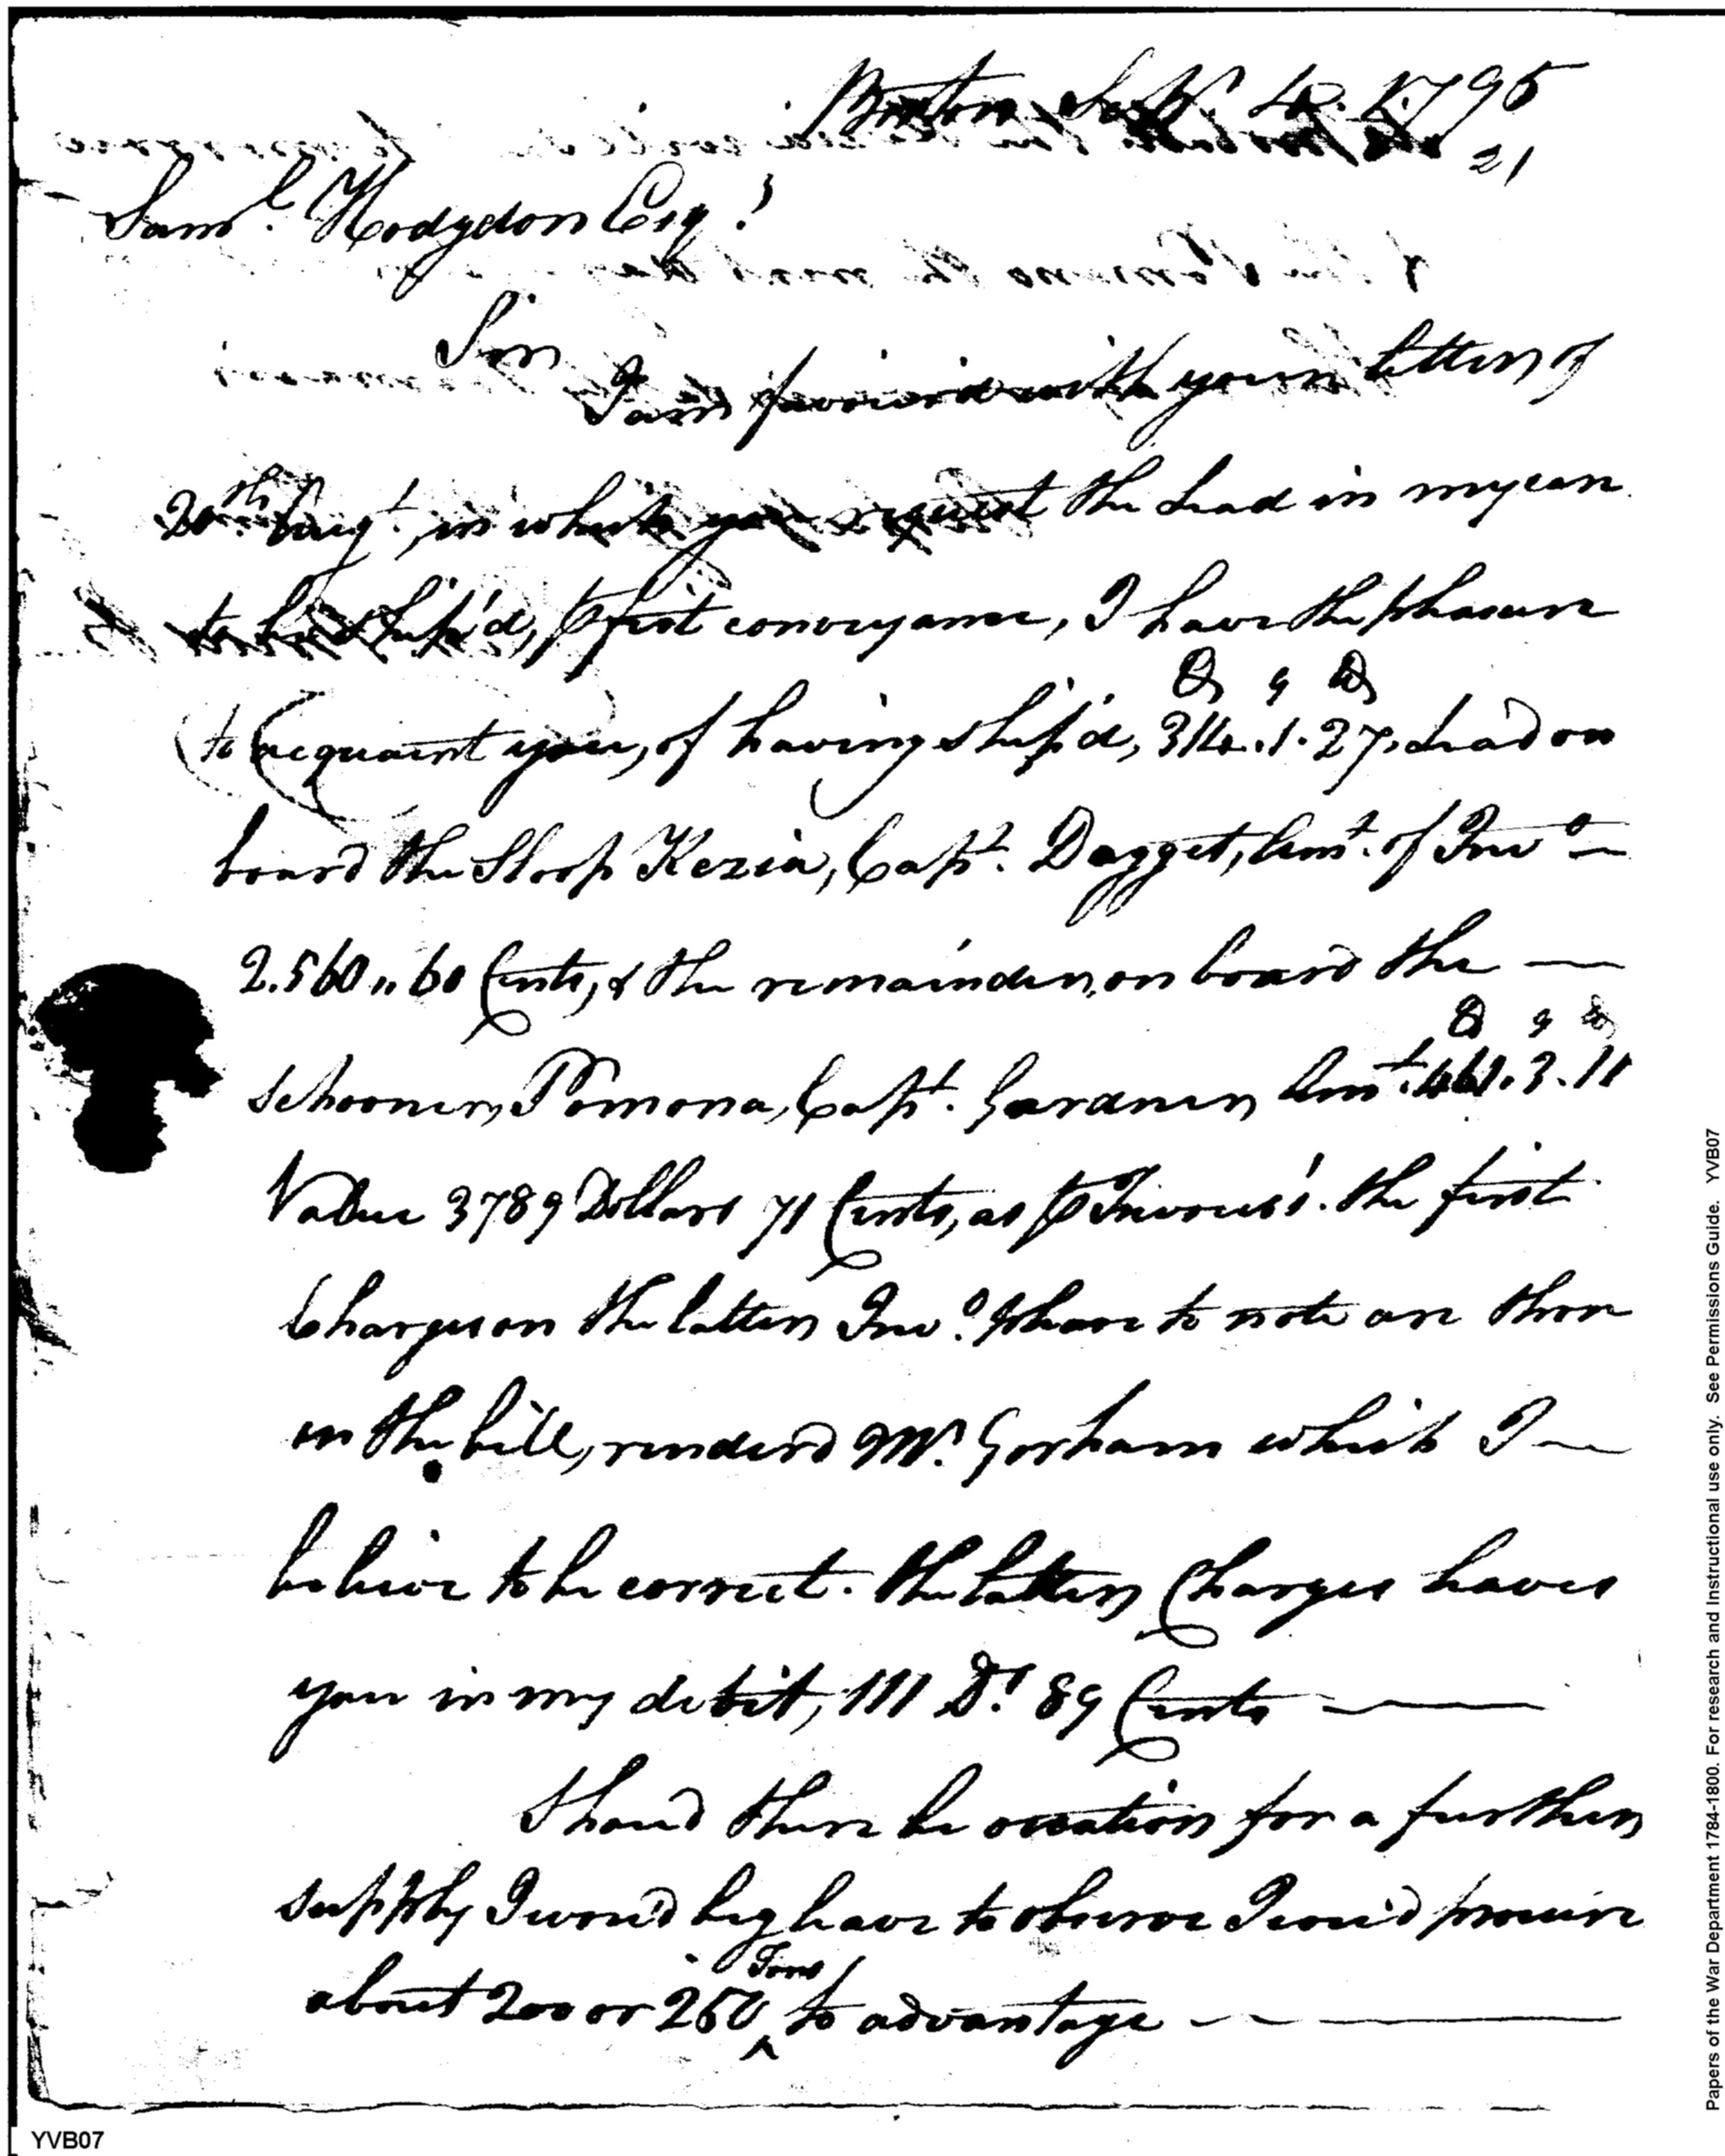 Boston Sept. 4. 1795
21
Saml. Hodgdon Esqr.
Sir
I am favoured with your letter of
20th Augt. in which you request the Lead in my care
to be ship'd, ⅌ first conveyance, I have the pleasure
to acquaint you, of having ship'd, 314.1.27. Lead on
board the Sloop Kezia, Capt. Dagget, Amt. of Invo
2.560,,60 Cents, & the remainder, on board the
Schooner Pomona, Capt. Gardner, Amt. 461.3.11
Value 3789 Dollars 71 Cents, as ⅌ Invoices. the first
Charges on the latter Invo. please to note are those
in the bill, renderd Mr. Gorham which I
believe to be correct. the latter Charges leaves
you in my debit, 111 Ds. 89 Cents
Shou'd there be occation for a further
supply I wou'd beg leave to observe I cou'd procure
about 200 or 250 Tons to advantage
Papers of the War Department 1784-1800. For research and Instructional use only. See Permissions Guide. YVB07
YVB07